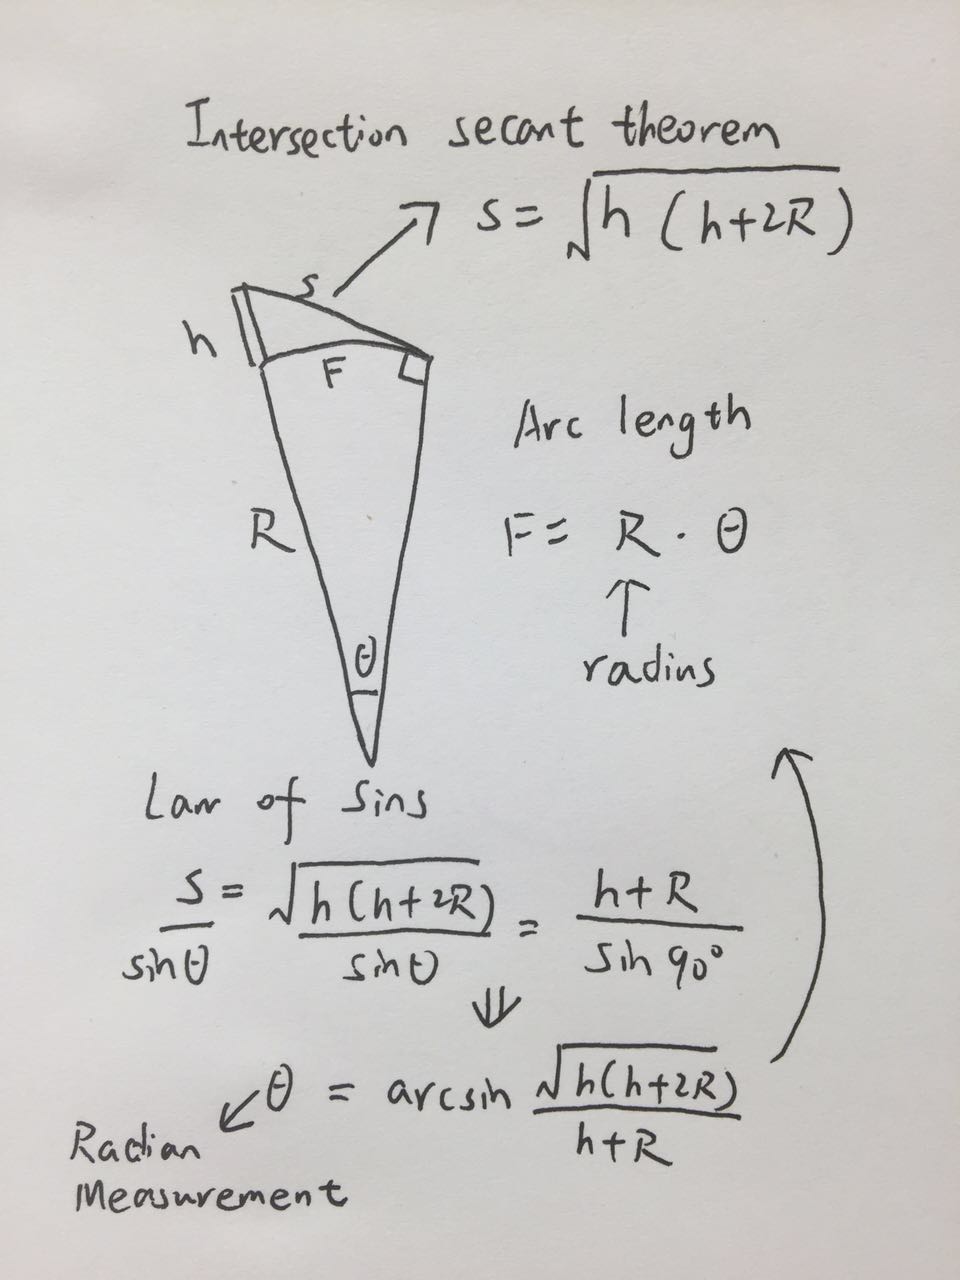 Intersection secant theorem
s = √h (h+2R)
s
h
F
Arc length
R
F = R · θ
radius
θ
Law of Sins
s/sinθ = √h(h+2R)/sinθ = h+R/sin 90°
⇓
θ = arcsin √h(h+2R)/h+R
Radian
Measurement